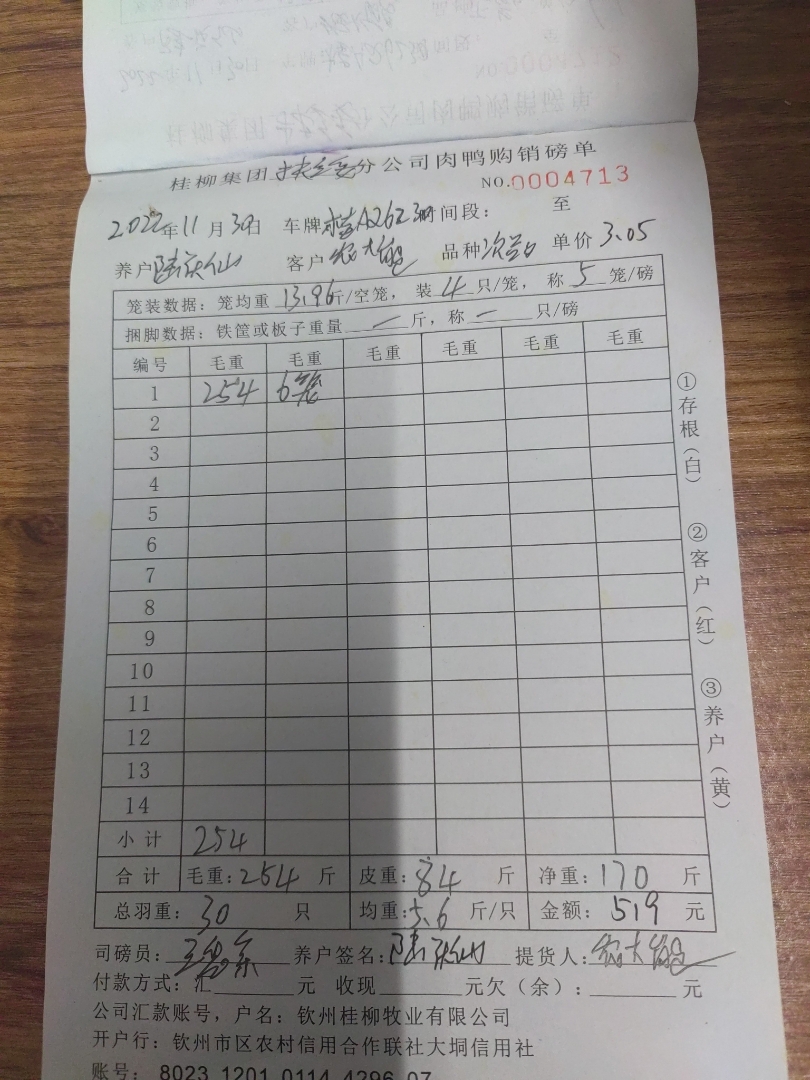 桂柳集团扶绥分公司肉鸭购销磅单
NO.0004713
2022年11月30日 车牌桂A2623 时间段: 至
养户 客户农大 品种次 单价3.05
笼装数据: 笼均重13.96斤/空笼, 装4只/笼, 称5笼/磅
捆脚数据: 铁筐或板子重量一斤, 称一只/磅
编号 毛重 毛重 毛重 毛重 毛重 毛重
1 254 6笼
2
3
4
5
6
7
8
9
10
11
12
13
14
小计 254
合计 毛重:254斤 皮重:84斤 净重:170斤
总羽重: 30只 均重:5.6斤/只 金额: 519元
司磅员: 养户签名: 提货人: 农大
付款方式: 汇 元 收现 元欠（余）: 元
公司汇款账号, 户名: 钦州桂柳牧业有限公司
开户行: 钦州市区农村信用合作联社大垌信用社
账号: 8023 1201 0114 4296 07
①存根（白）
②客户（红）
③养户（黄）